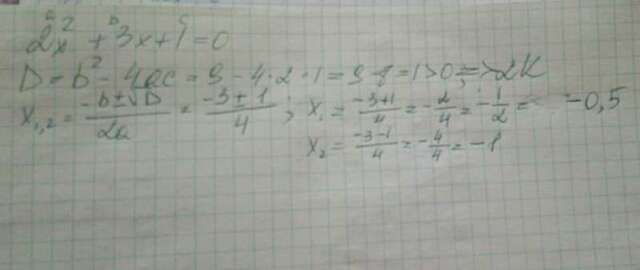 a b c
2x² + 3x + 1 = 0
D = b² - 4ac = 9 - 4·2·1 = 9-8 = 1 > 0 => 2K
x₁,₂ = (-b±√D)/2a = (-3±1)/4 ; x₁ = (-3+1)/4 = -2/4 = -1/2 = -0,5
x₂ = (-3-1)/4 = -4/4 = -1